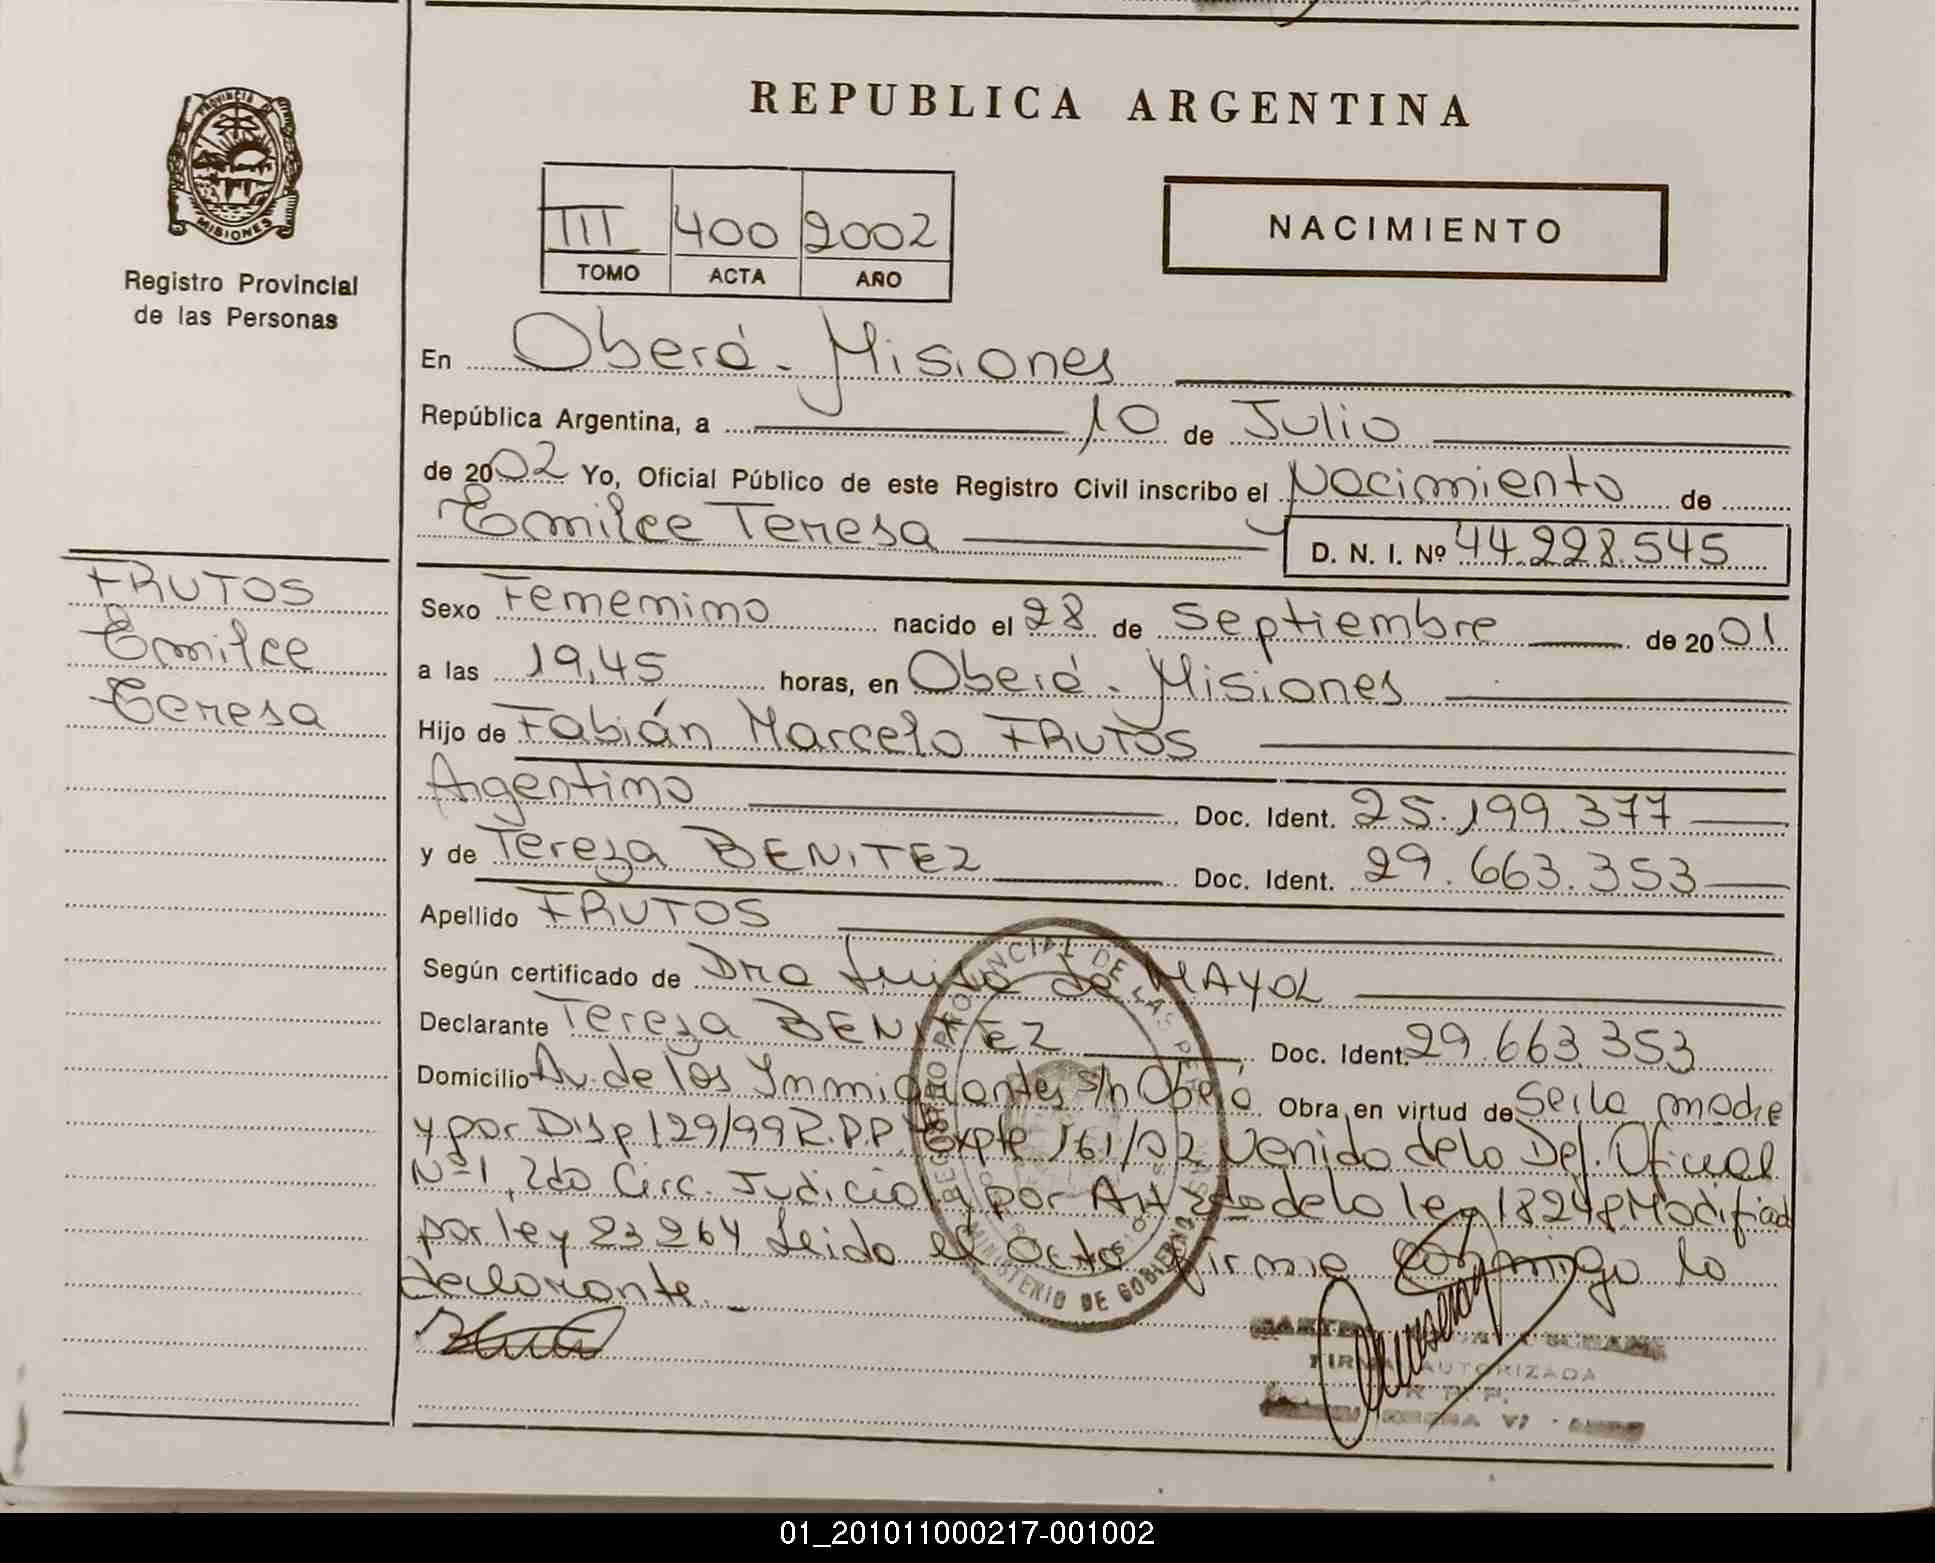 REPUBLICA ARGENTINA
PROVINCIA DE MISIONES
Registro Provincial
de las Personas
III 400 2002
TOMO ACTA AÑO
NACIMIENTO
En Oberá - Misiones
República Argentina, a 10 de Julio
de 2002 Yo, Oficial Público de este Registro Civil inscribo el Nacimiento de
Emilce Teresa D. N. I. Nº 44.228.545
FRUTOS
Emilce
Teresa
Sexo Femenino nacido el 28 de Septiembre de 2001
a las 19,45 horas, en Oberá - Misiones
Hijo de Fabián Marcelo FRUTOS
Argentino Doc. Ident. 25.199.377
y de Tereza BENITEZ Doc. Ident. 29.663.353
Apellido FRUTOS
Según certificado de Dra Luisa de MAYOL
Declarante Tereza BENITEZ Doc. Ident. 29.663.353
Domicilio Av. de los Inmigrantes s/n Oberá Obra en virtud de Ser la madre
y por Disp 129/99 R.P.P. Expte 161/02 Venido de la Def. Oficial
Nº 1, 2da Circ. Judicial y por Art 2do de la ley 18248 Modificad
por ley 23264 Leido el acta firma conmigo la
declarante. -
REGISTRO PROVINCIAL DE LAS PERSONAS
MINISTERIO DE GOBIERNO
FIRMA AUTORIZADA
R. P. P.
01_201011000217-001002